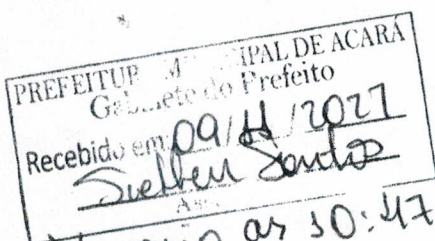 PREFEITUR M IPAL DE ACARÁ
Gabinete do Prefeito
Recebido em 09/11/2021
Suellen Santos
Ass
as 10:47